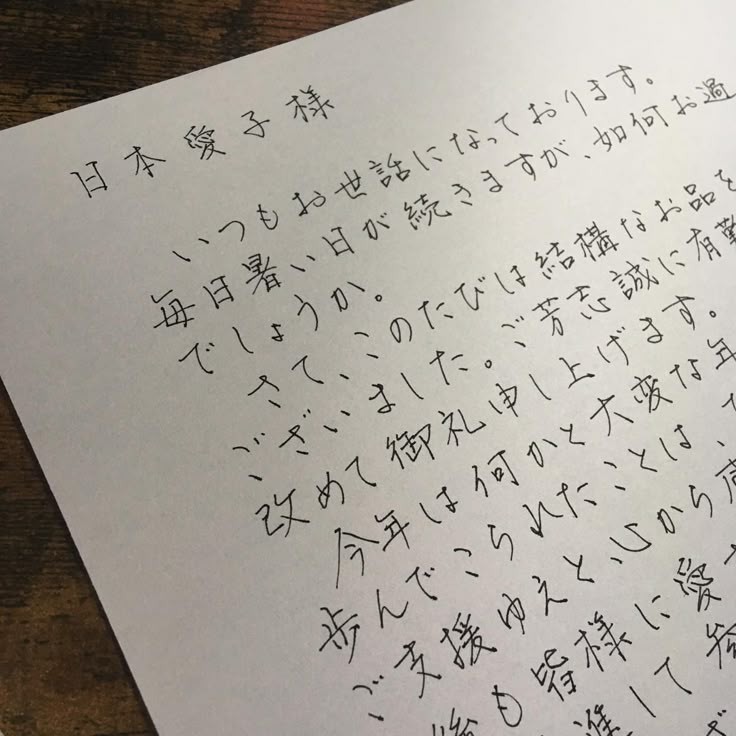 日本愛子様
いつもお世話になっております。
毎日暑い日が続きますが、如何お過
でしょうか。
さて、このたびは結構なお品を
ございました。ご芳志誠に有難
改めて御礼申し上げます。
今年は何かと大変な年
歩んでこられたことは、
ご支援ゆえと心から
後も皆様に愛
進して